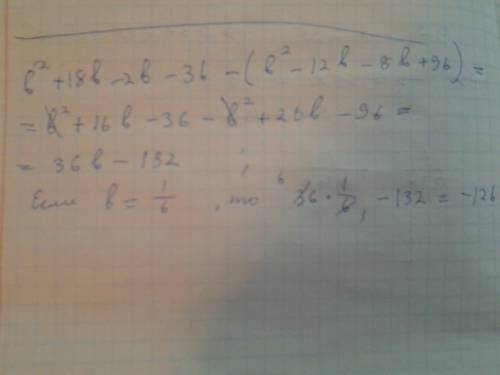 b² + 18b - 2b - 36 - (b² - 12b - 8b + 96) =
= b² + 16b - 36 - b² + 20b - 96 =
= 36b - 132 ;
Если b = 1/6 , то 36 · 1/6 - 132 = -126